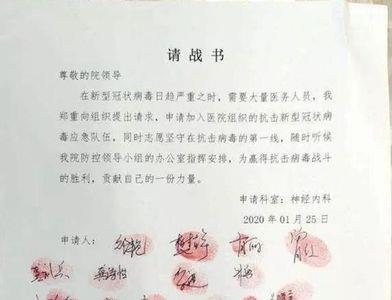 请战书
尊敬的院领导
在新型冠状病毒日趋严重之时，需要大量医务人员，我
郑重向组织提出请求，申请加入医院组织的抗击新型冠状
病毒应急队伍，同时志愿坚守在抗击病毒的第一线，随时听候
我院防控领导小组的办公室指挥安排，为赢得抗击病毒战斗
的胜利，贡献自己的一份力量。
申请科室：神经内科
2020 年 01 月 25 日
申请人：